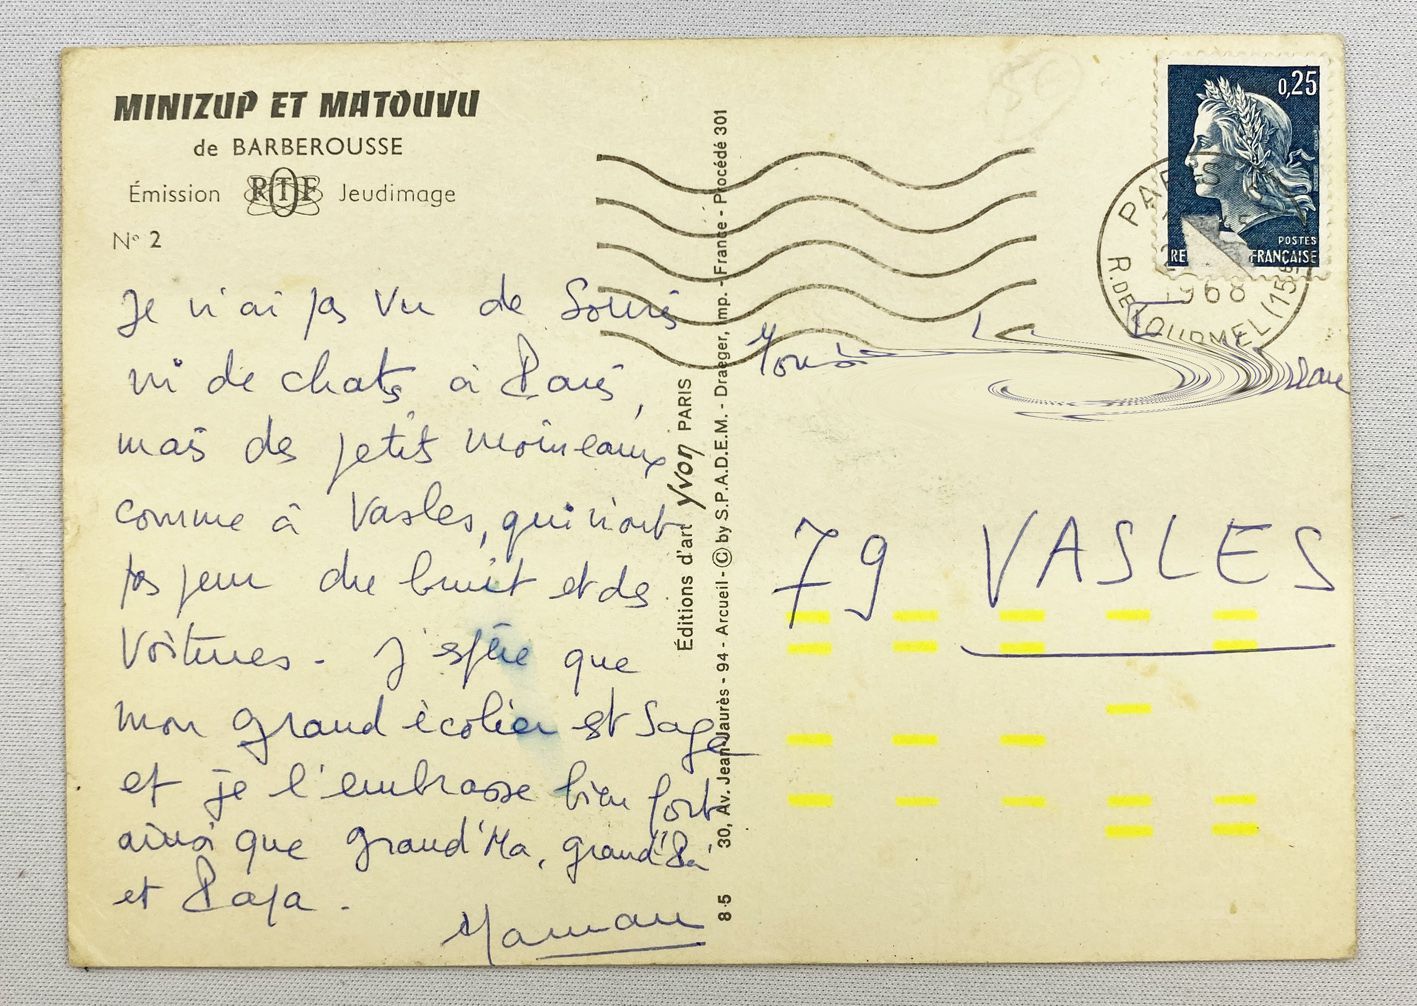 MINIZUP ET MATOUVU
de BARBEROUSSE
Émission RTF Jeudimage
N° 2
Je n'ai pas vu de Souris
ni de chats à Paris,
mais des petits moineaux
comme à Vasles, qui n'ont
pas peur du bruit et des
Voitures - J'espère que
mon grand écolier est sage
et je l'embrasse bien fort
ainsi que grand'Ma, grand'Pa
et Papa.
Maman
Éditions d'art yvon PARIS
30, Av. Jean-Jaurès - 94 - Arcueil - © by S.P.A.D.E.M. - Draeger, imp. - France - Procédé 301
8-5
0,25
POSTES
RE FRANÇAISE
PARIS
1968
R. DE LOURMEL (15e)
79 VASLES